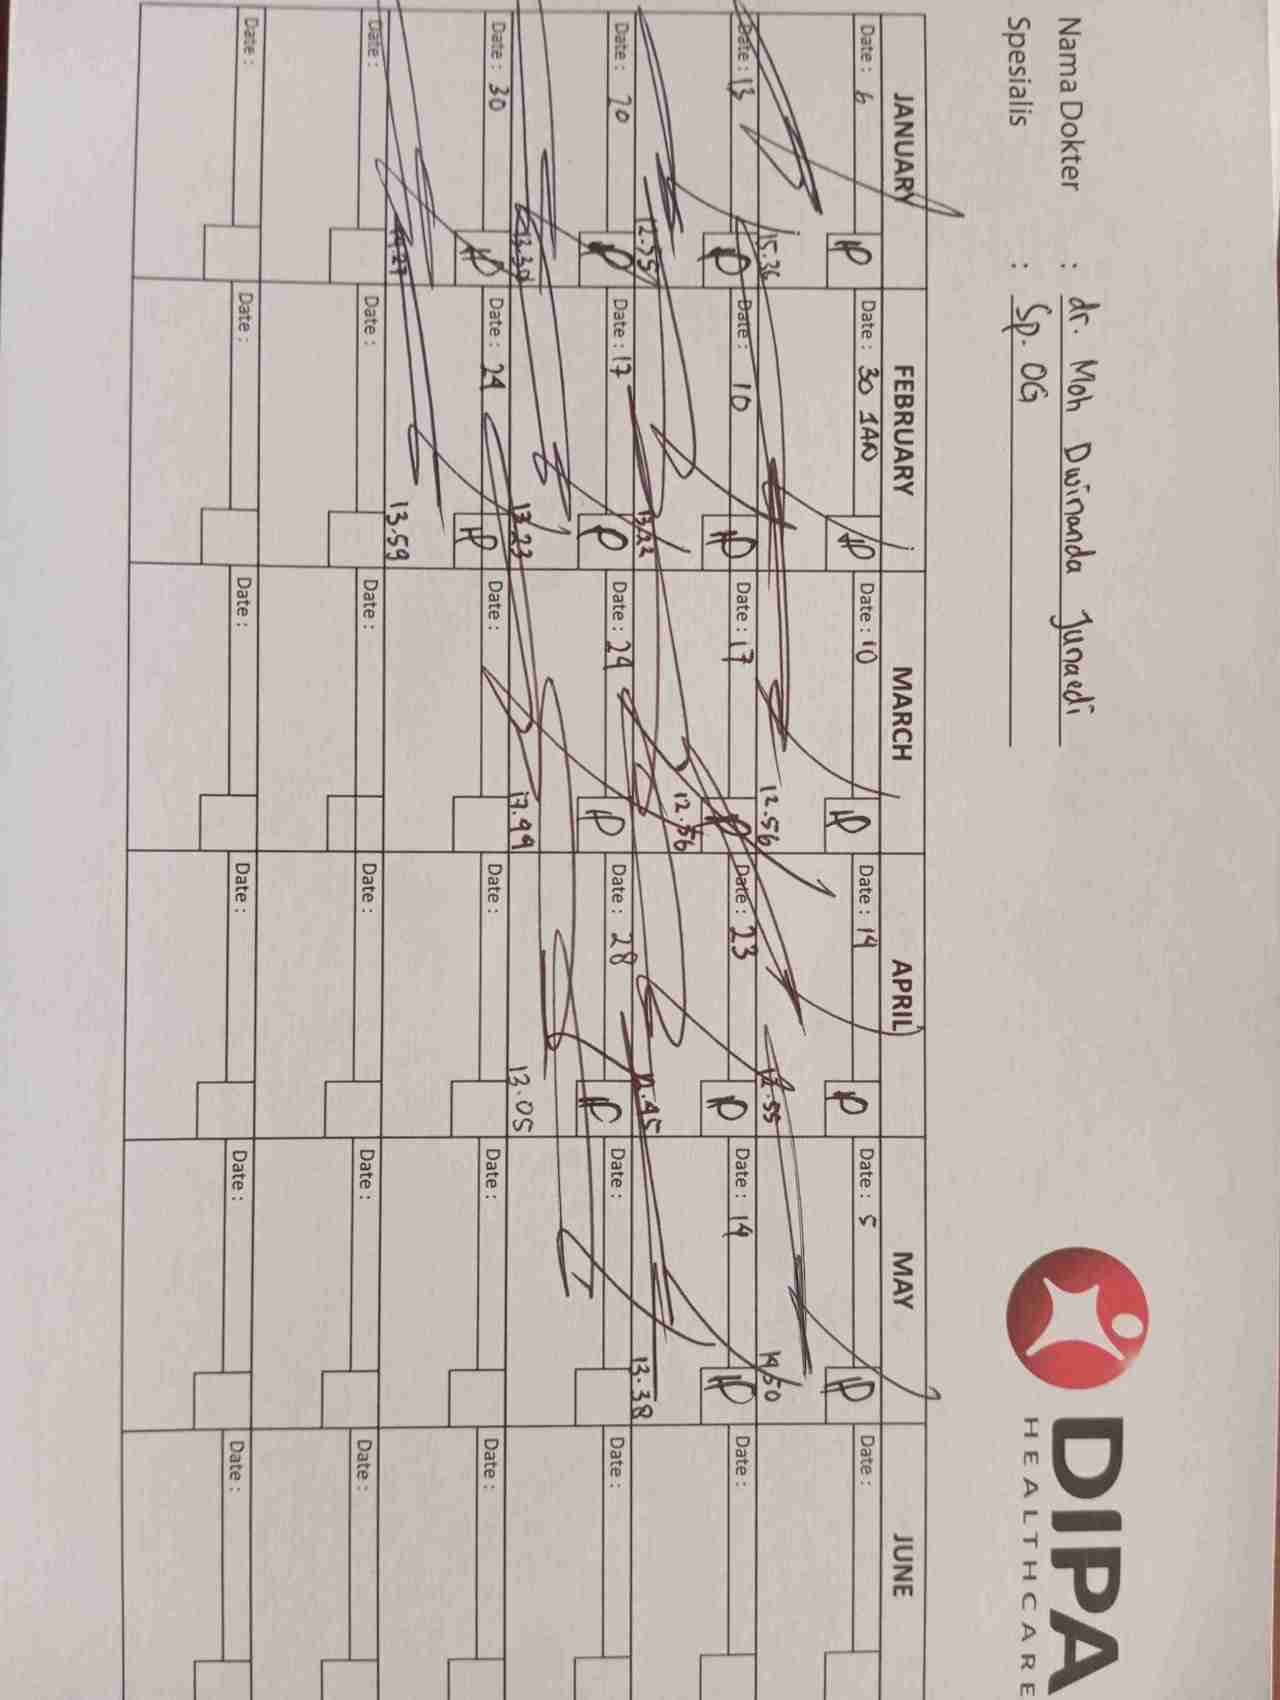 DIPA
HEALTHCARE
Nama Dokter : dr. Moh Dwinanda Junaedi
Spesialis : Sp. OG
JANUARY FEBRUARY MARCH APRIL MAY JUNE
Date : 6 Date : 30 JAN Date : 10 Date : 14 Date : 5 Date :
15.36 12.56 14.50
Date : 13 Date : 10 Date : 17 Date : 23 Date : 14 Date :
12.56 13.38
Date : 20 Date : 17 Date : 24 Date : 28 Date : Date :
13.30 13.23 17.44 13.05
Date : 30 Date : 24 Date : Date : Date : Date :
13.59
Date : Date : Date : Date : Date : Date :
Date : Date : Date : Date : Date : Date :